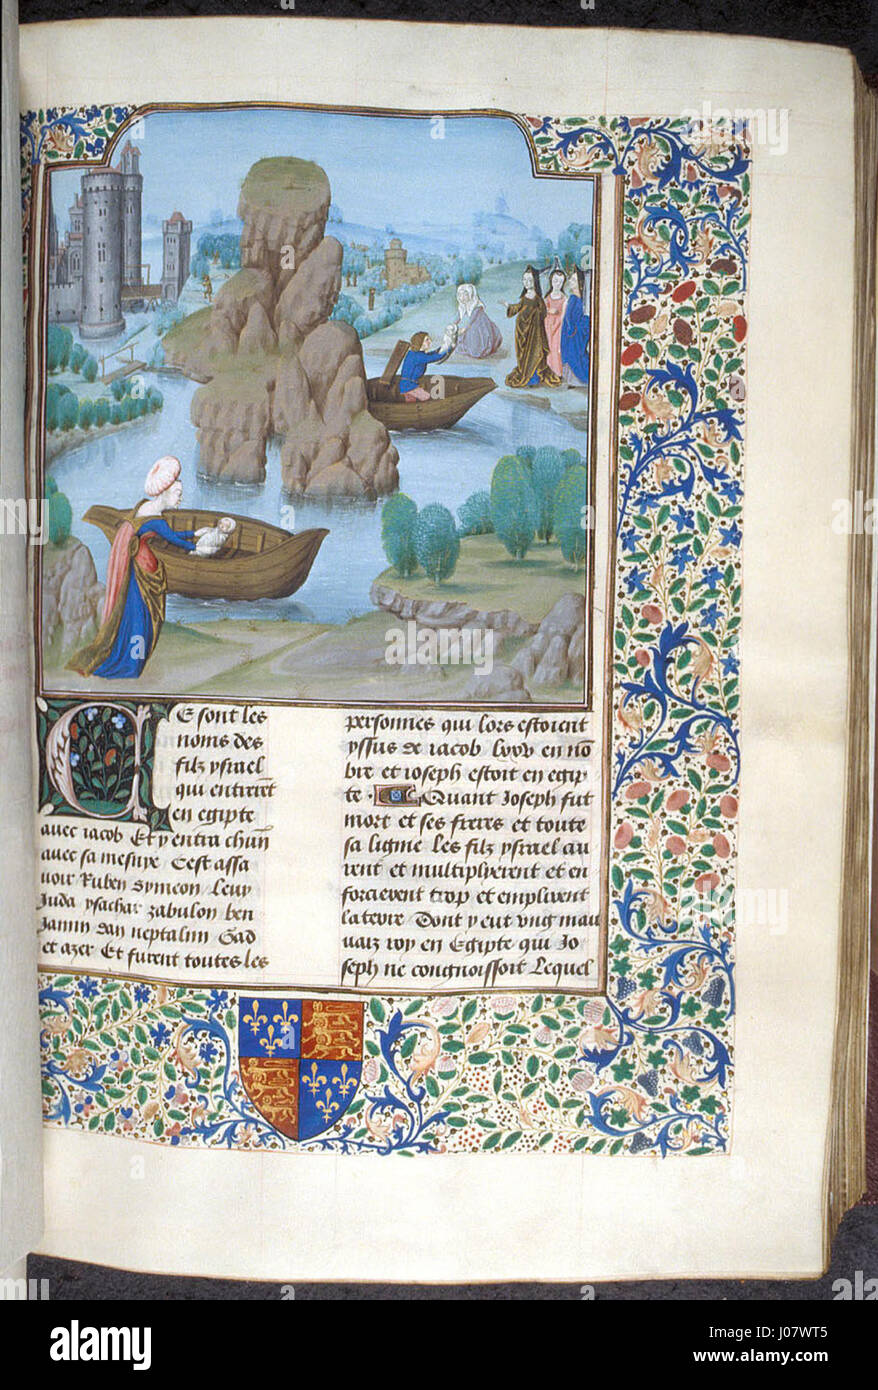 CE sont les
noms des
filz ysrael
qui entrerent
en egipte
avec iacob Et y entra chun
avec sa mesnye Cest assa
voir Ruben Symeon Levy
Juda ysachar zabulon ben
Jamin dan neptalim Gad
et azer Et furent toutes les
personnes qui lors estoient
yssus de iacob lxxv en nō
bre et ioseph estoit en egip
te Quant Joseph fut
mort et ses freres et toute
sa lignie les filz ysrael au
rent et multiplyerent et en
forcierent trop et emplirent
la terre Dont y eut ung mau
vaiz roy en Egipte qui Jo
seph ne congnoissoit Lequel
alamy
Image ID: J07WT5
www.alamy.com